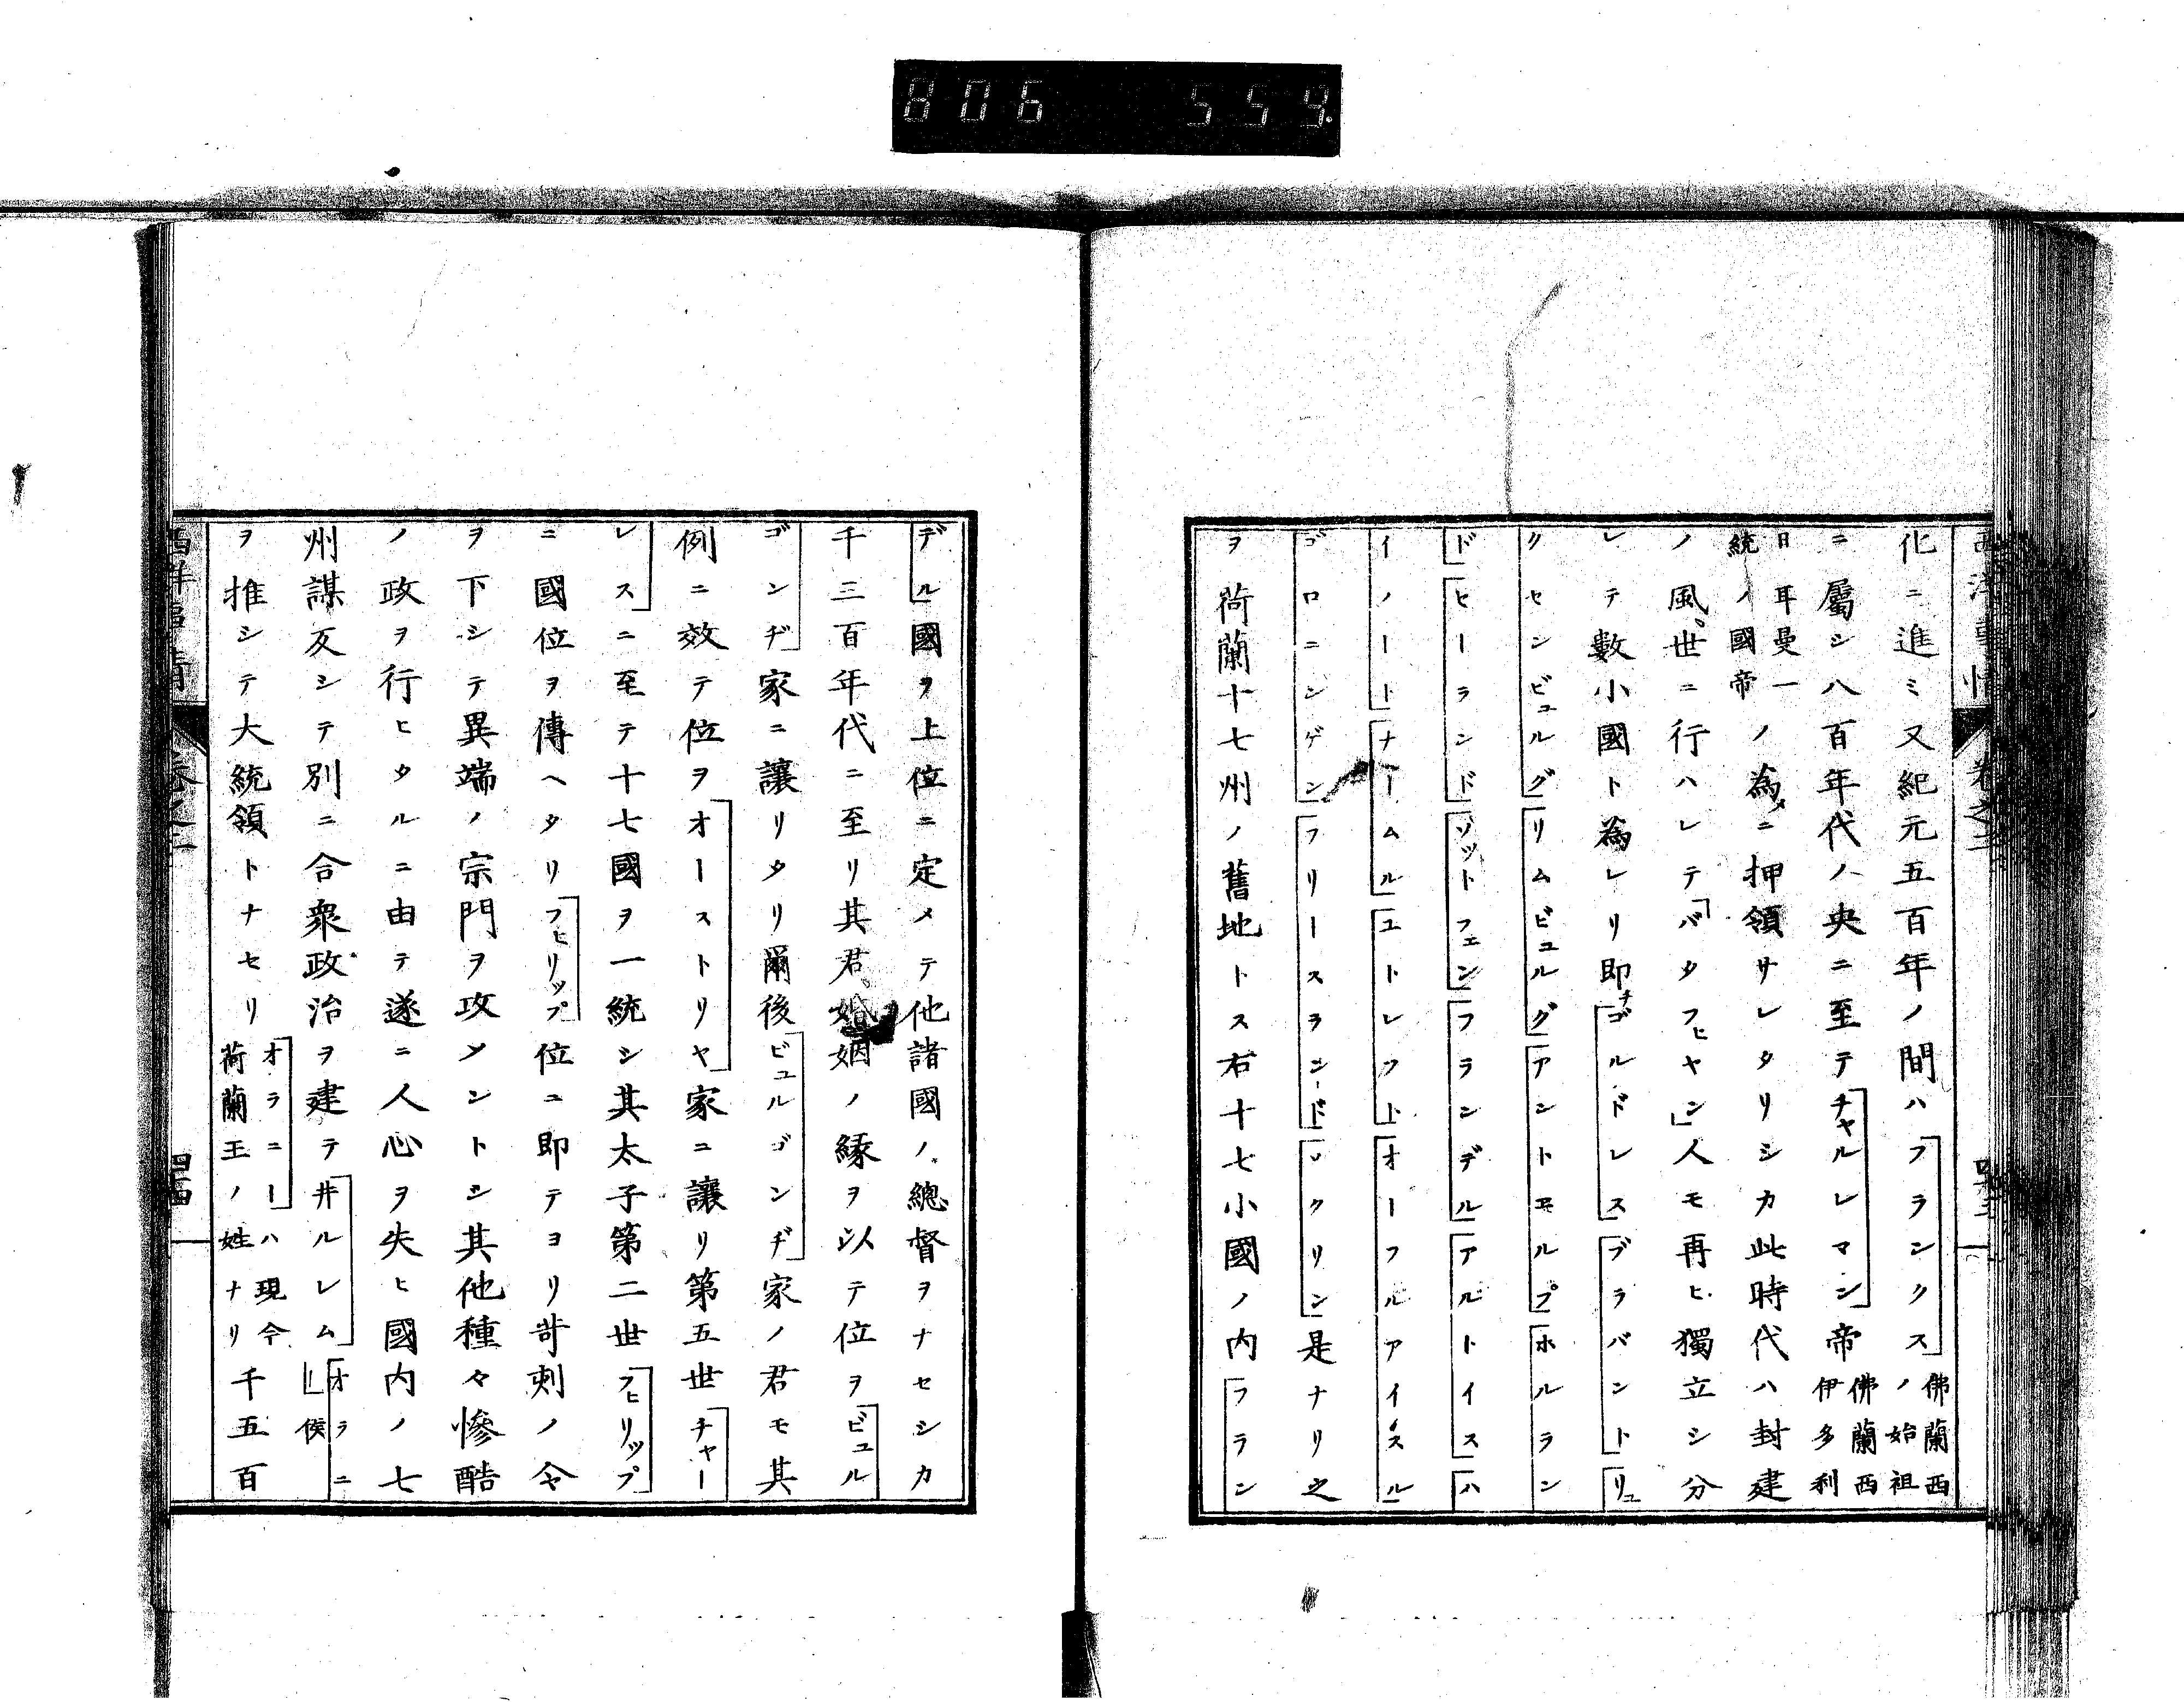 806 559.
化ニ進ミ又紀元五百年ノ間ハ「フランクス」佛蘭西ノ始祖
ニ屬シ八百年代ノ央ニ至テ「チャルレマン」帝佛蘭西伊多利
日耳曼一統ノ國帝ノ為メニ押領サレタリシカ此時代ハ封建
ノ風世ニ行ハレテ「バタフヒヤン」人モ再ヒ獨立シ分
レテ數小國ト為レリ即チ「ゴルドレス」「ブラバント」「リュ
クセンビュルグ」「リムビュルグ」「アントモルプ」「ホルラン
ド」「ヒーランド」「ソットフェン」「フランデル」「アルトイス」「ハ
イノート」「ナームル」「ユトレフト」「オーフルアイスル」
「ゴロニンゲン」「フリースランード」「ソクリン」是ナリ之
ヲ荷蘭十七州ノ舊地トス右十七小國ノ内「フラン
デル」國ヲ上位ニ定メテ他諸國ノ總督ヲナセシカ
千三百年代ニ至リ其君婚姻ノ縁ヲ以テ位ヲ「ビュル
ゴンヂ」家ニ讓リタリ爾後「ビュルゴンヂ」家ノ君モ其
例ニ效テ位ヲ「オーストリヤ」家ニ讓リ第五世「チャー
レス」ニ至テ十七國ヲ一統シ其太子第二世「フヒリップ」
ニ國位ヲ傳ヘタリ「フヒリップ」位ニ即テヨリ苛刺ノ令
ヲ下シテ異端ノ宗門ヲ攻メントシ其他種々慘酷
ノ政ヲ行ヒタルニ由テ遂ニ人心ヲ失ヒ國内ノ七
州謀反シテ別ニ合衆政治ヲ建テ「井ルレム」「オラニー」侯
ヲ推シテ大統領トナセリ「オラニー」ハ現今荷蘭王ノ姓ナリ千五百